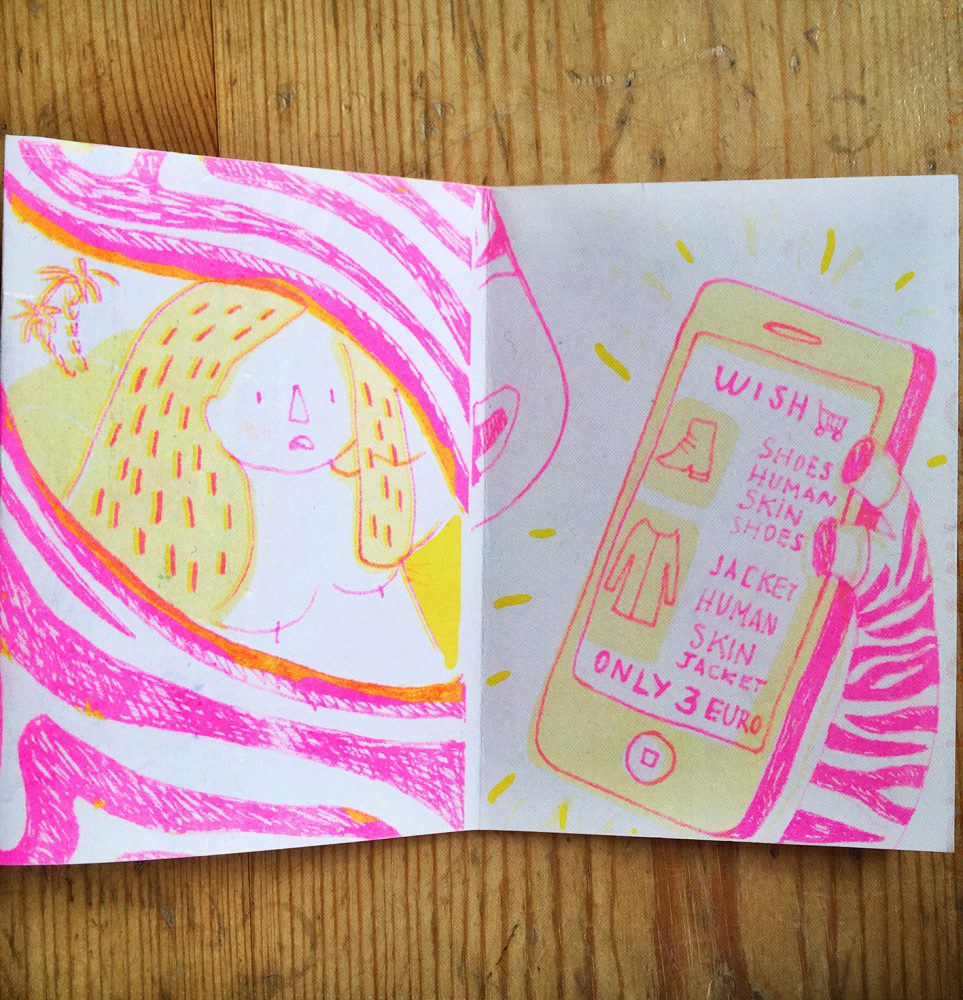 WISH
SHOES
HUMAN
SKIN
SHOES
JACKET
HUMAN
SKIN
JACKET
ONLY 3 EURO